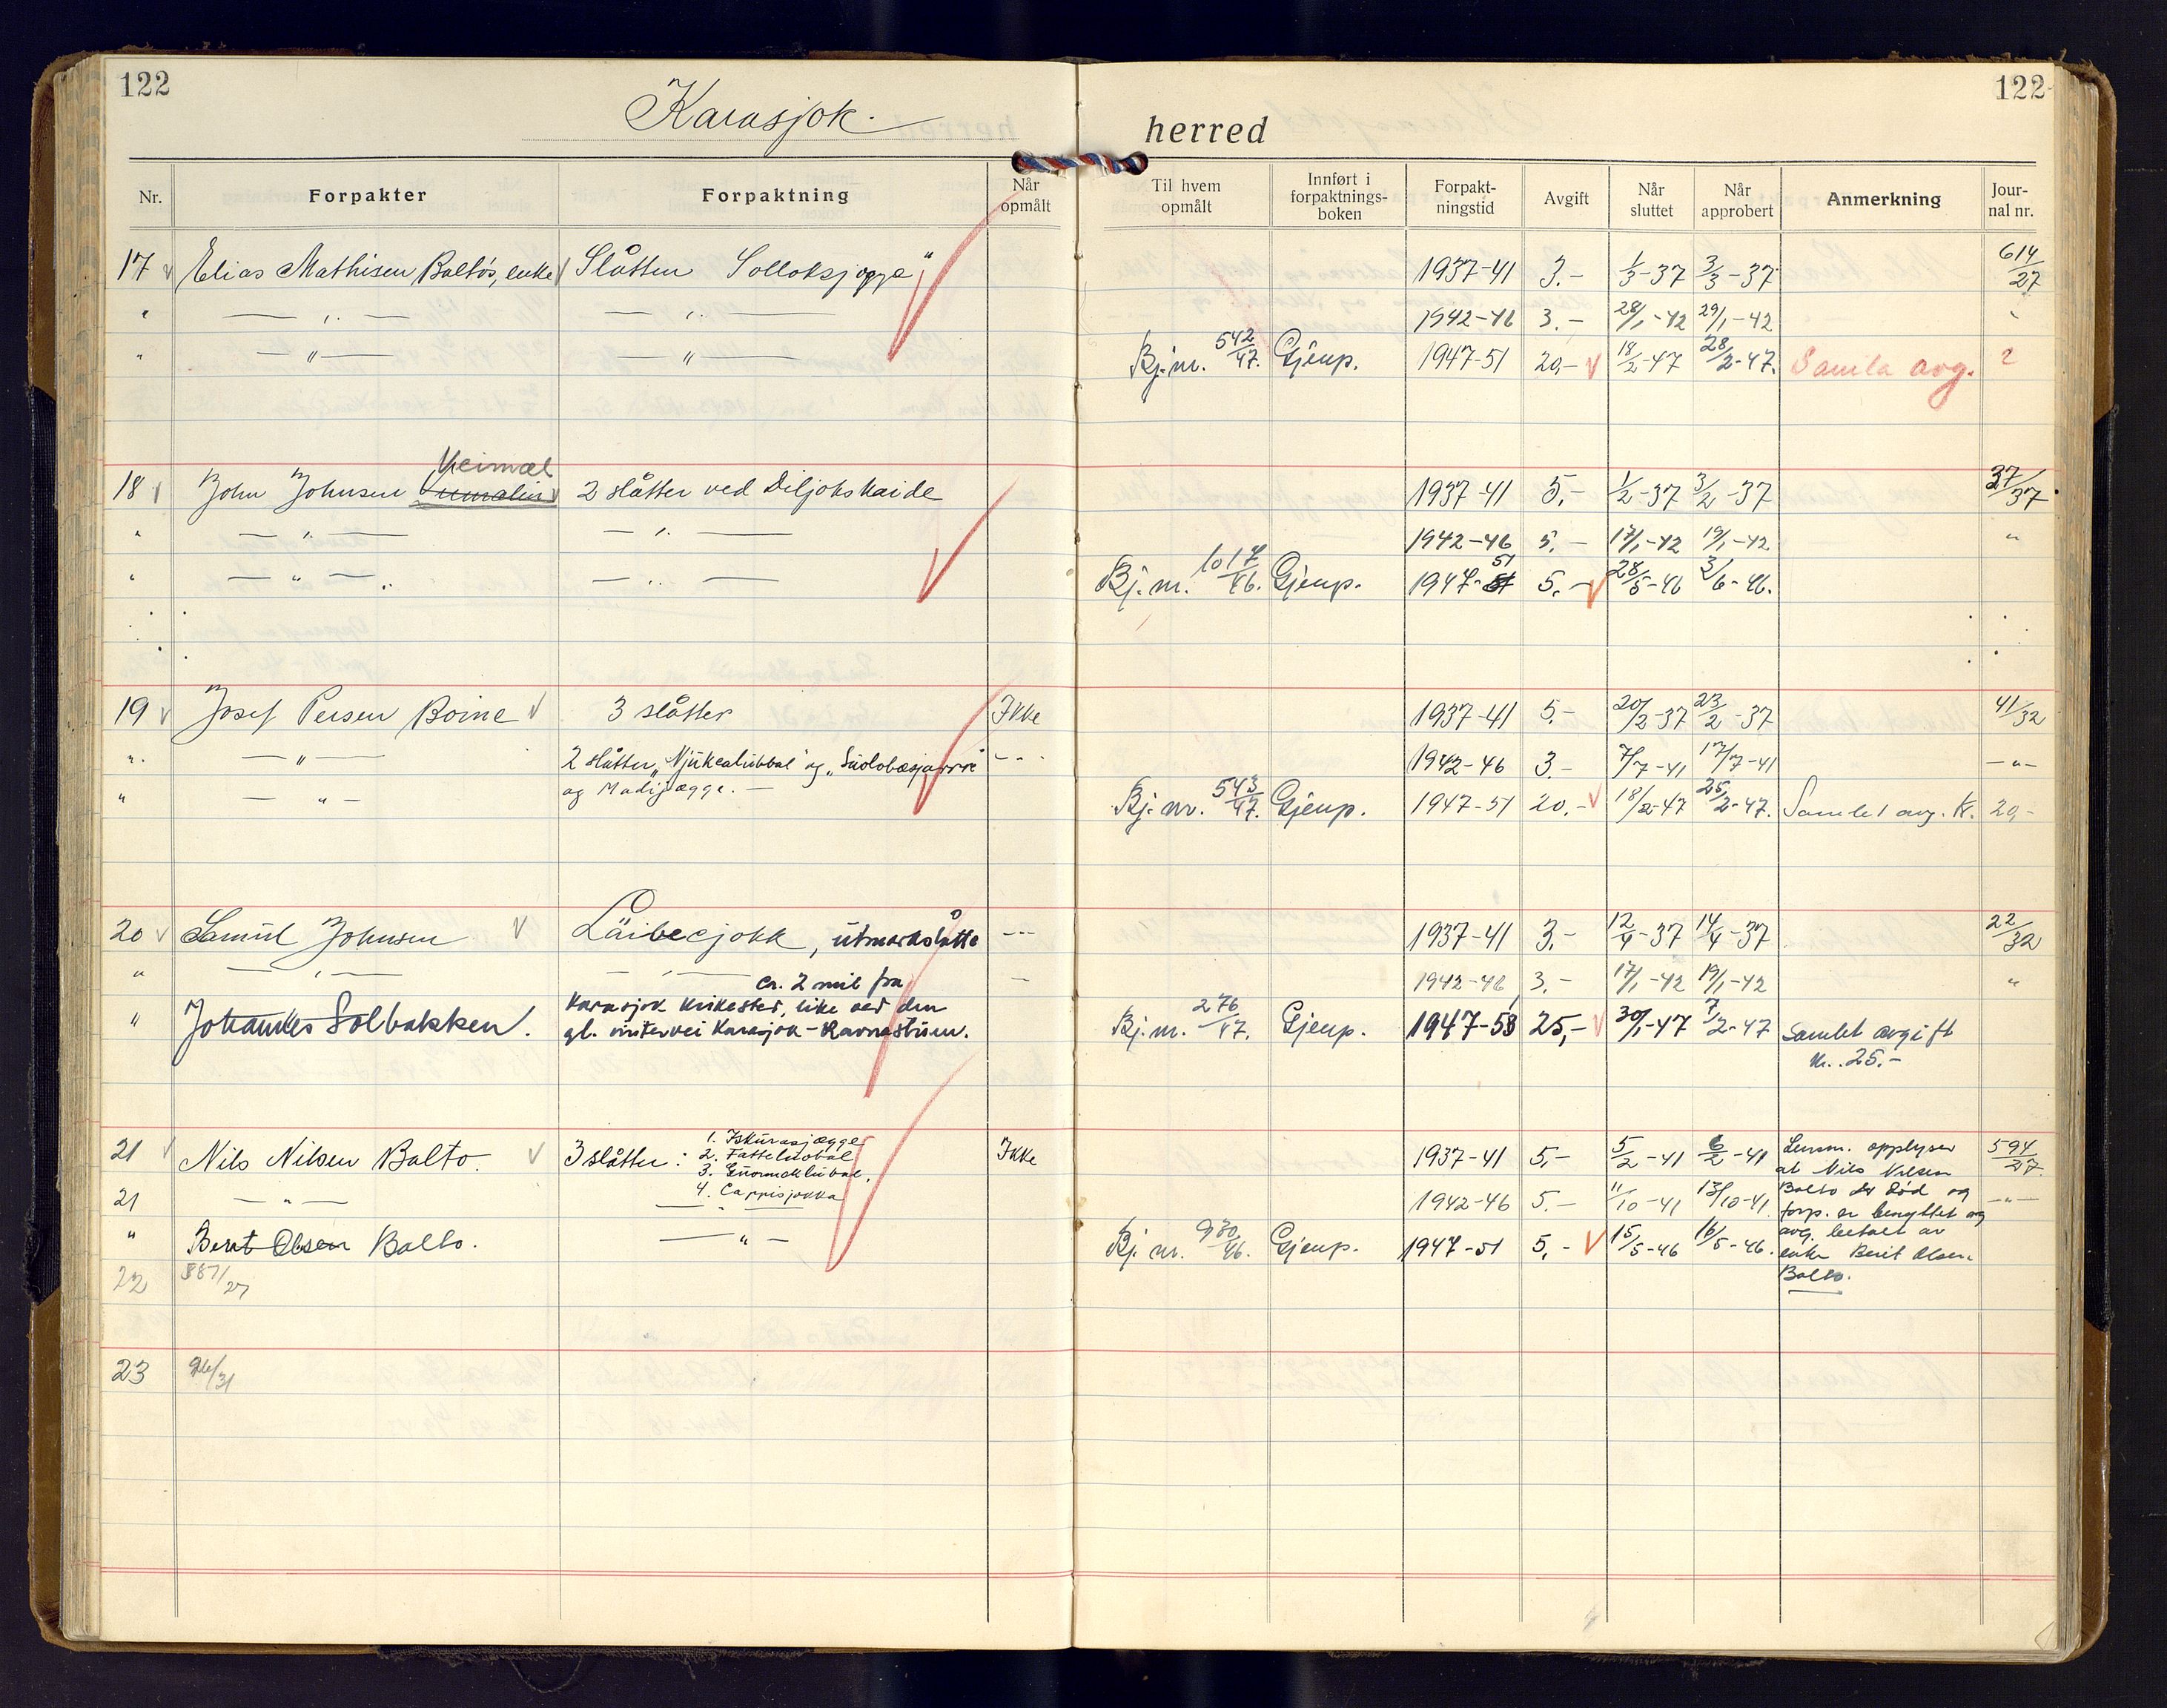 122
122
Karasjok.
herred
Nr. Forpakter Forpaktning Når opmålt Til hvem opmålt Innført i forpaktnings-boken Forpakt-ningstid Avgift Når sluttet Når approbert Anmerkning Jour-nal nr.
17 Elias Mathisen Balto's, enke Slåtten Solloksjægge" 1937-41 3.- 1/3-37 3/3-37 614/27
" — " — — " — 1942-46 3.- 28/1-42 29/1-42 "
" — " — — " — Bj.nr. 542/47. Gjenp. 1947-51 20,- 18/2-47 28/2-47. Samla avg. ?
Veimæl
18 John Johnsen 2 slåtter ved Diljokskaide 1937-41 5.- 1/2-37 3/2-37 37/37
" — " — — " — 1942-46 5.- 17/1-42 19/1-42 "
" — " — — " — Bj.nr. 1017/46. Gjenp. 1947-51 5.- 28/5-46 3/6-46.
19 Josef Persen Boine 3 slåtter Ikke 1937-41 5.- 20/2-37 23/2-37 41/32
" — " — 2 slåtter, "Njukcalubbal" og "Suolobæsjavrre" - - - 1942-46 3.- 7/7-41 17/7-41 — " —
" — " — og Madijægge. — Bj.nr. 543/47. Gjenp. 1947-51 20.- 18/2-47 25/2-47. Samlet avg. Kr. 20,-
20 Samuel Johnsen Läibecjokk, utmarkslåtte - - - 1937-41 3.- 12/4-37 14/4-37 22/32
" — " — — " — ca. 2 mil fra — 1942-46 3.- 17/1-42 19/1-42 "
" Johannes Solbakken. Karasjok kirkested, like ved den
gl. vintervei Karasjok-Ravnastuen. Bj.nr. 276/47. Gjenp. 1947-51 25,- 30/1-47 7/2-47 Samlet avgift
kr. 25.-
21 Nils Nilsen Balto. 3 slåtter: 1. Iskurasjægge Ikke 1937-41 5,- 5/2-41 6/2-41 Lensm. opplyser 594/27
2. Fatteluobal at Nils Nilsen
3. Guormakluobal.
21 — " — 4. Cappisjokka 1942-46 5.- 11/10-41 13/10-41 Balto er død og — " —
forp. er benyttet og
" Berit Olsen Balto. — " — Bj.nr. 930/46. Gjenp. 1947-51 5,- 15/5-46 16/5-46. avg. betalt av
enke Berit Olsen
22 587/27 Balto.
23 96/31